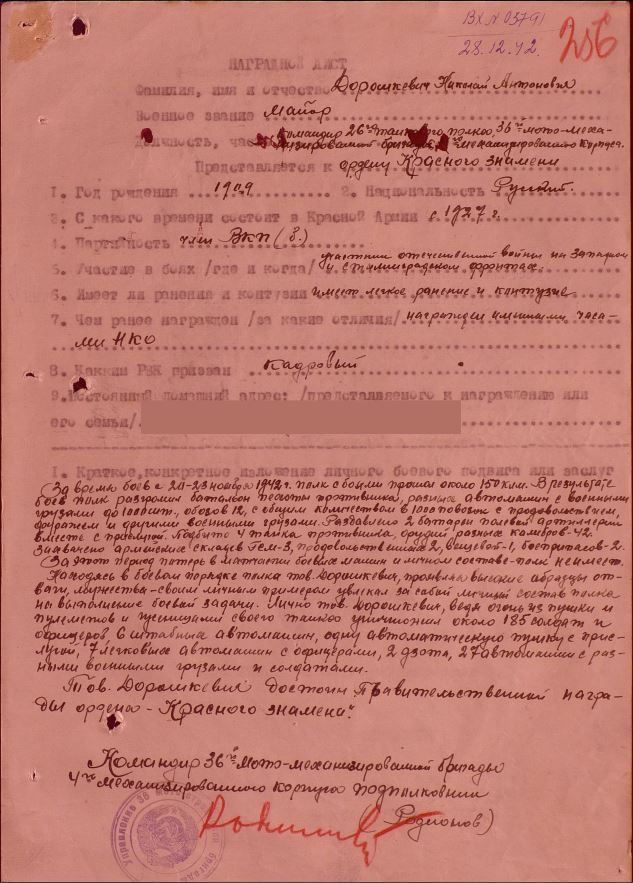 Вх № 03791
28.12.42.
256
НАГРАДНОЙ ЛИСТ
Фамилия, имя и отчество Дорошкевич Николай Антонович
Военное звание Майор
Должность, часть Командир 26го танкового полка 36й мото-меха-
низированной бригады, механизированного корпуса.
Представляется к ордену Красного знамени
1. Год рождения 1909 2. Национальность Русский.
3. С какого времени состоит в Красной Армии с 1927 г.
4. Партийность член ВКП(б.)
5. Участие в боях /где и когда/ участник отечественной войны на Западном
и Сталинградском фронтах.
6. Имеет ли ранения и контузии имеет легкое ранение и контузию
7. Чем ранее награжден /за какие отличия/ награжден имеными часа-
ми НКО
8. Каким РВК призван Кадровый
9. Постоянный домашний адрес: /представляемого к награждению или
его семьи/
1. Краткое, конкретное изложение личного боевого подвига или заслуг
За время боев с 20-23 ноября 1942 г. полк с боями прошел около 150 км. В результате
боев полк разгромил батальон пехоты противника, разных автомашин с военными
грузами до 100 шт., обозов 12, с общим количеством в 1000 повозок с продовольствием,
фуражем и другими военными грузами. Раздавлено 2 батареи полевой артиллерии
вместе с прислугой. Подбито 4 танка противника, орудий разных калибров-42.
Захвачено армейских складов ГСМ-3, продовольственных 2, вещевой-1, боеприпасов-2.
За этот период потерь в матчасти боевых машин и личном составе-полк не имеет.
Находясь в боевом порядке полка тов. Дорошкевич, проявлял высокие образцы от-
ваги, мужества-своим личным примером увлекал за собой личный состав полка
на выполнение боевой задачи. Лично тов. Дорошкевич, ведя огонь из пушки и
пулеметов и гусеницами своего танка уничтожил около 185 солдат и
офицеров, 6 штабных автомашин, одну автоматическую пушку с прис-
лугой, 7 легковых автомашин с офицерами, 2 дзота, 27 автомашин с раз-
ными военными грузами и солдатами.
Тов. Дорошкевич достоин Правительственной награ-
ды ордена - "Красного знамени".
Командир 36й Мото-механизированной бригады
4го Механизированного корпуса подполковник
(Родионов)
Управление 36